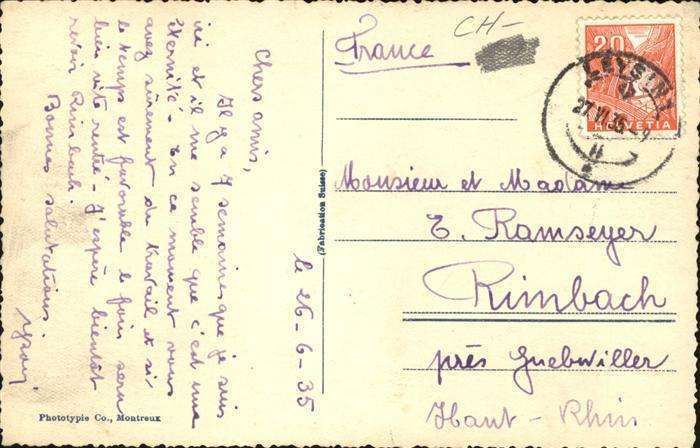 Chers amis,
Il y a 7 semaines que je suis
ici et il me semble que c'est une
éternité - En ce moment vous
avez sûrement du travail et si
le temps est favorable le foin sera
bien vite rentré - J'espère bientôt
revoir Rimbach.
Bonnes salutations.
le 26-6-35
Phototypie Co., Montreux
(Fabrication Suisse)
CH-
France
20
HELVETIA
LEYSIN
27.VI.35
Monsieur et Madame
E. Ramseyer
Rimbach
près Guebwiller
Haut-Rhin